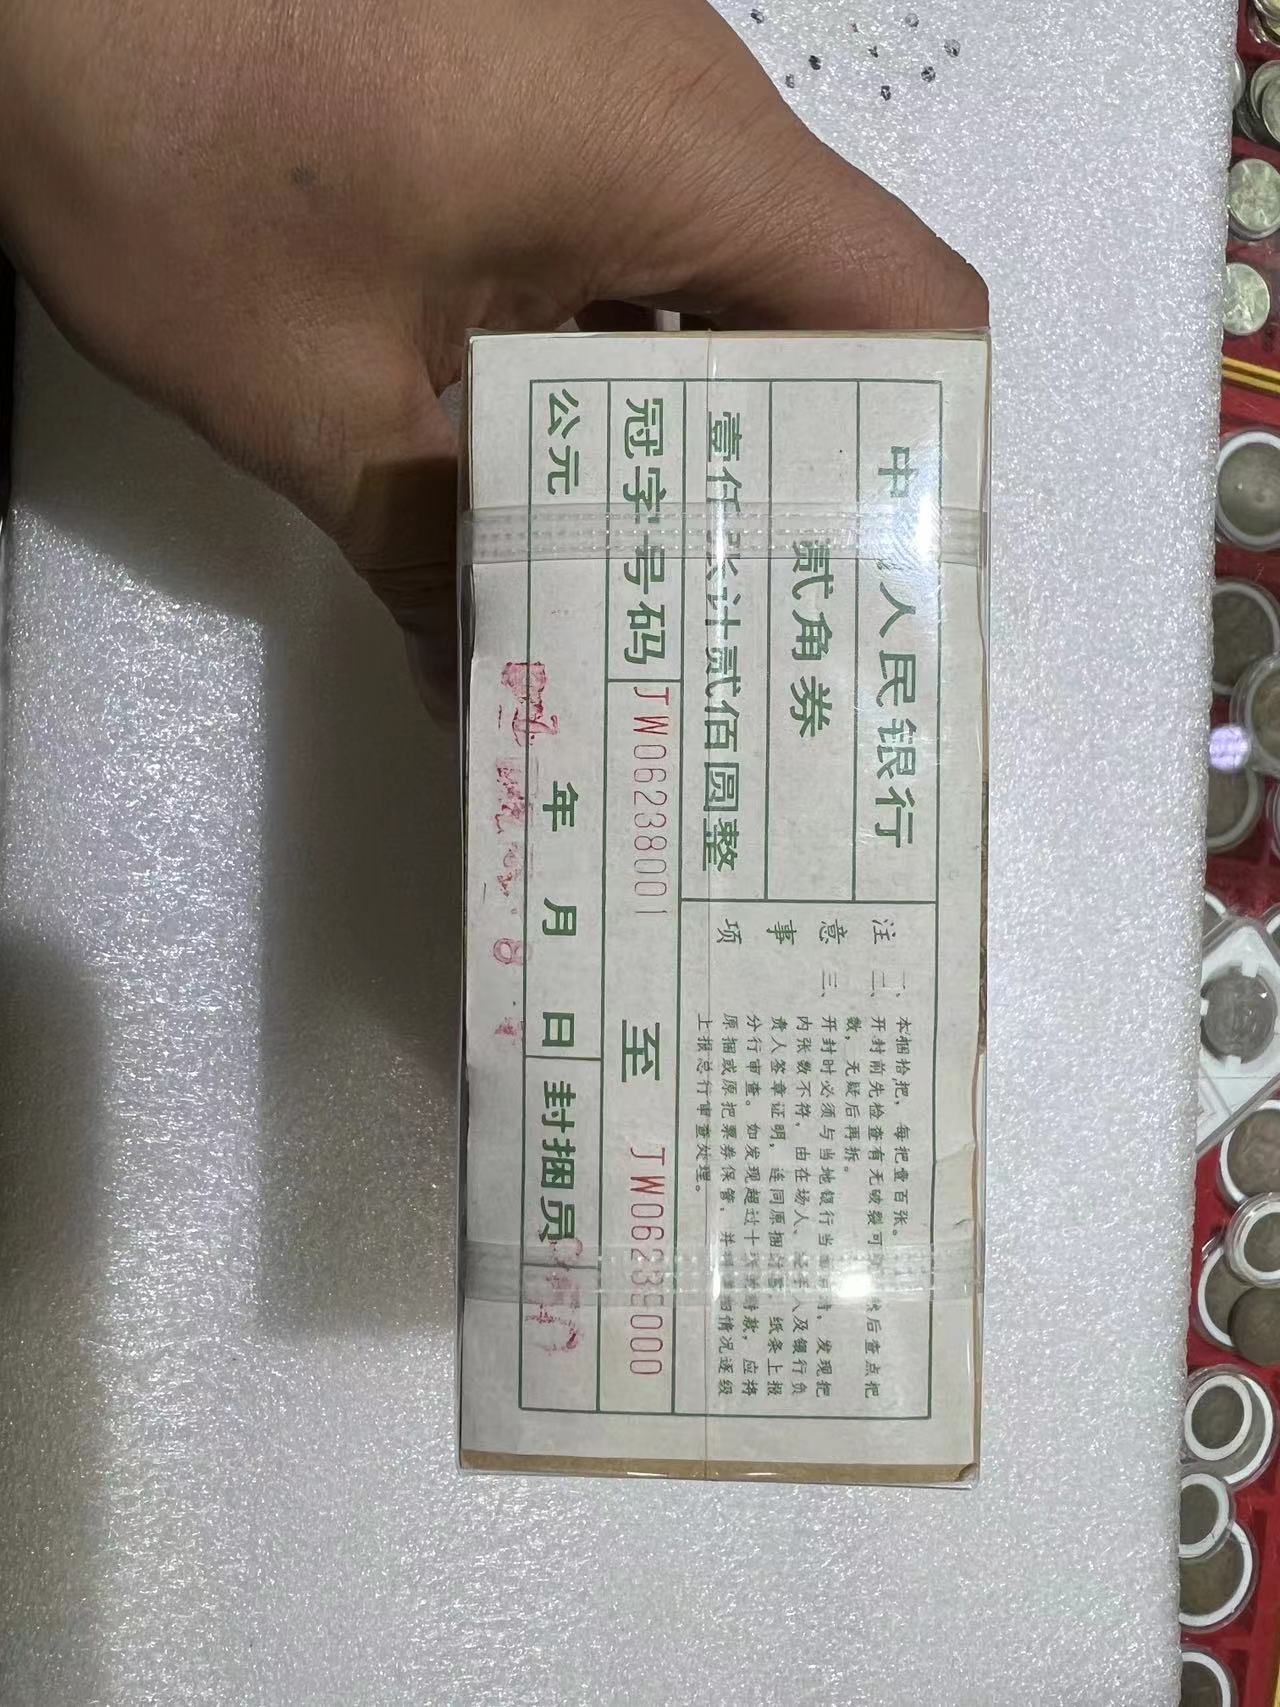 中 人民银行
贰角券
壹仟张计贰佰圆整
冠字号码 JW06238001 至 JW06239000
公元 年 月 日 封捆员
注意事项
一、本捆拾把，每把壹百张。
二、开封前先检查有无破裂可 然后查点把
数，无疑后再拆。
三、开封时必须与当地银行当 发现把
内张数不符，由在场人、 人及银行负
责人签章证明，连同原捆 纸条上报
分行审查。如发现超过十 款，应将
原捆或原把票券保管，并 情况逐级
上报总行审查处理。